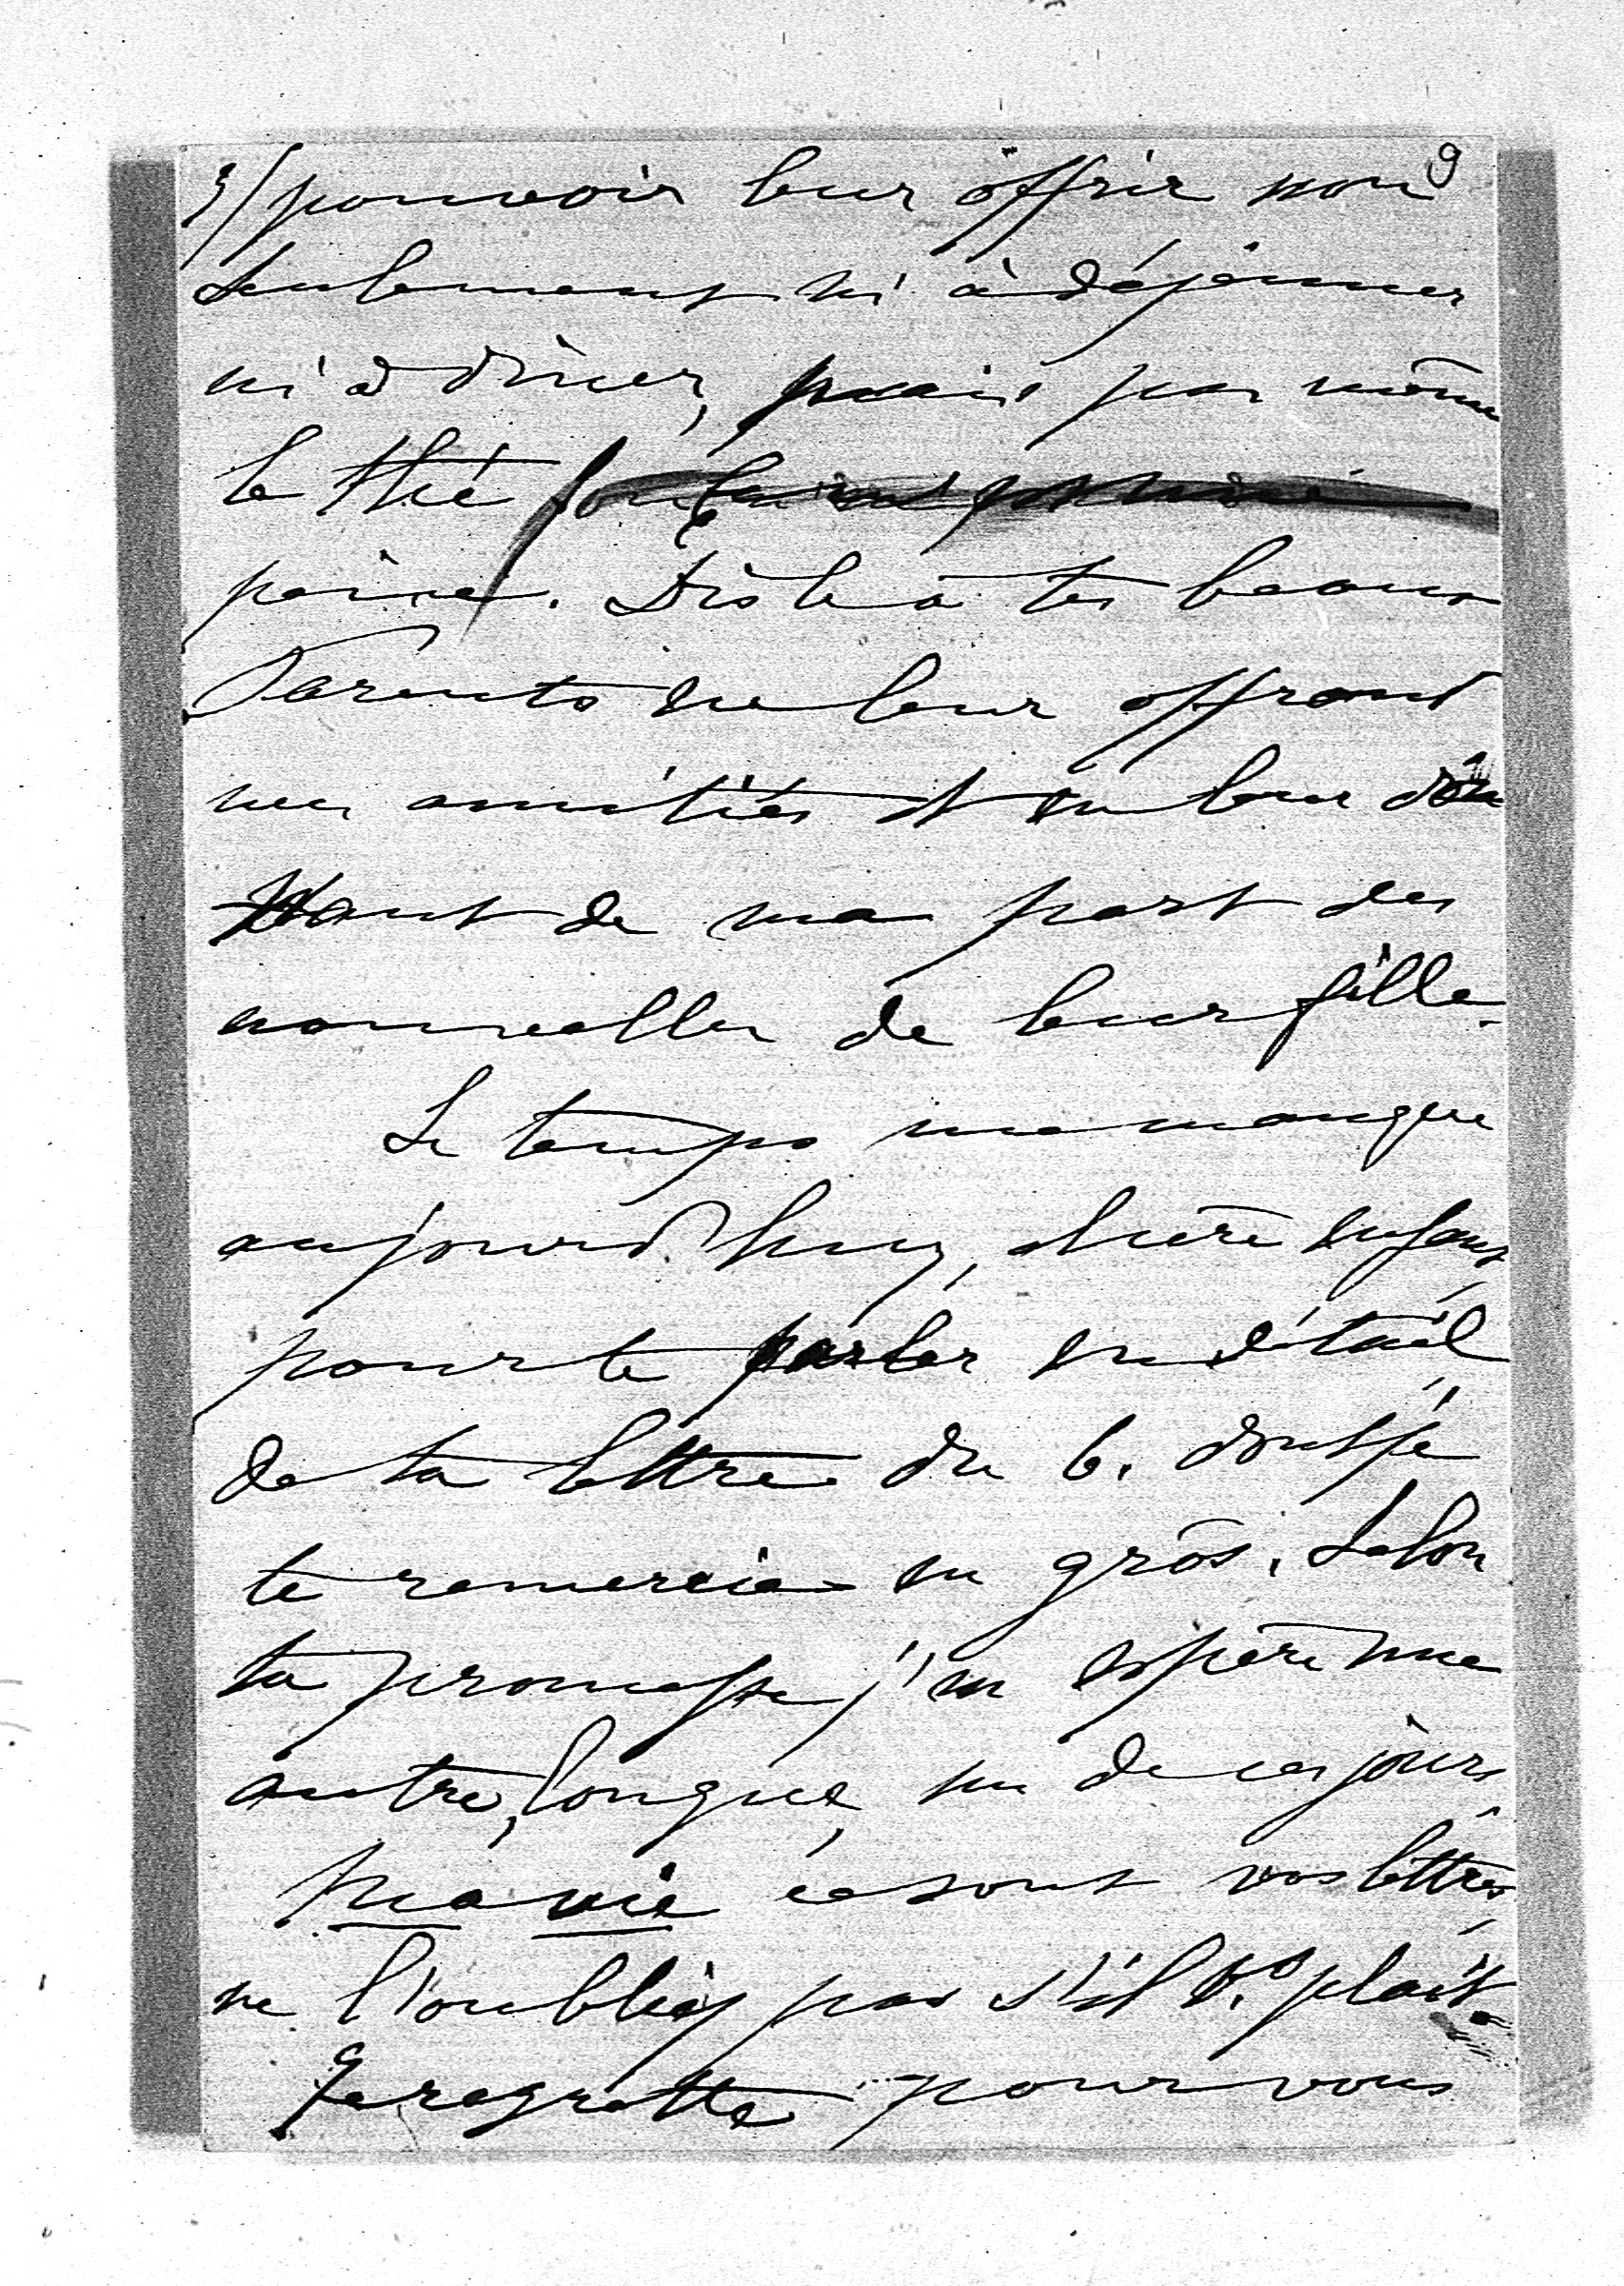 3/ pouvoir leur offrir non 9
seulement ni à déjeuner
ni à dîner, mais pas même
le thé
peine. Dis le à tes beaux
Parents en leur offrant
mes amitiés et en leur don
nant de ma part des
nouvelles de leur fille.
Le temps me manque
aujourd'huy, chère enfant,
pour te parler en détail
de ta lettre du 6. dont je
te remercie en gros. Selon
ta promesse j'en espère une
autre, longue, un de ces jours.
Ma vie ce sont vos lettres,
ne l'oubliez pas s'il V.s plait.
Je regrette pour vous